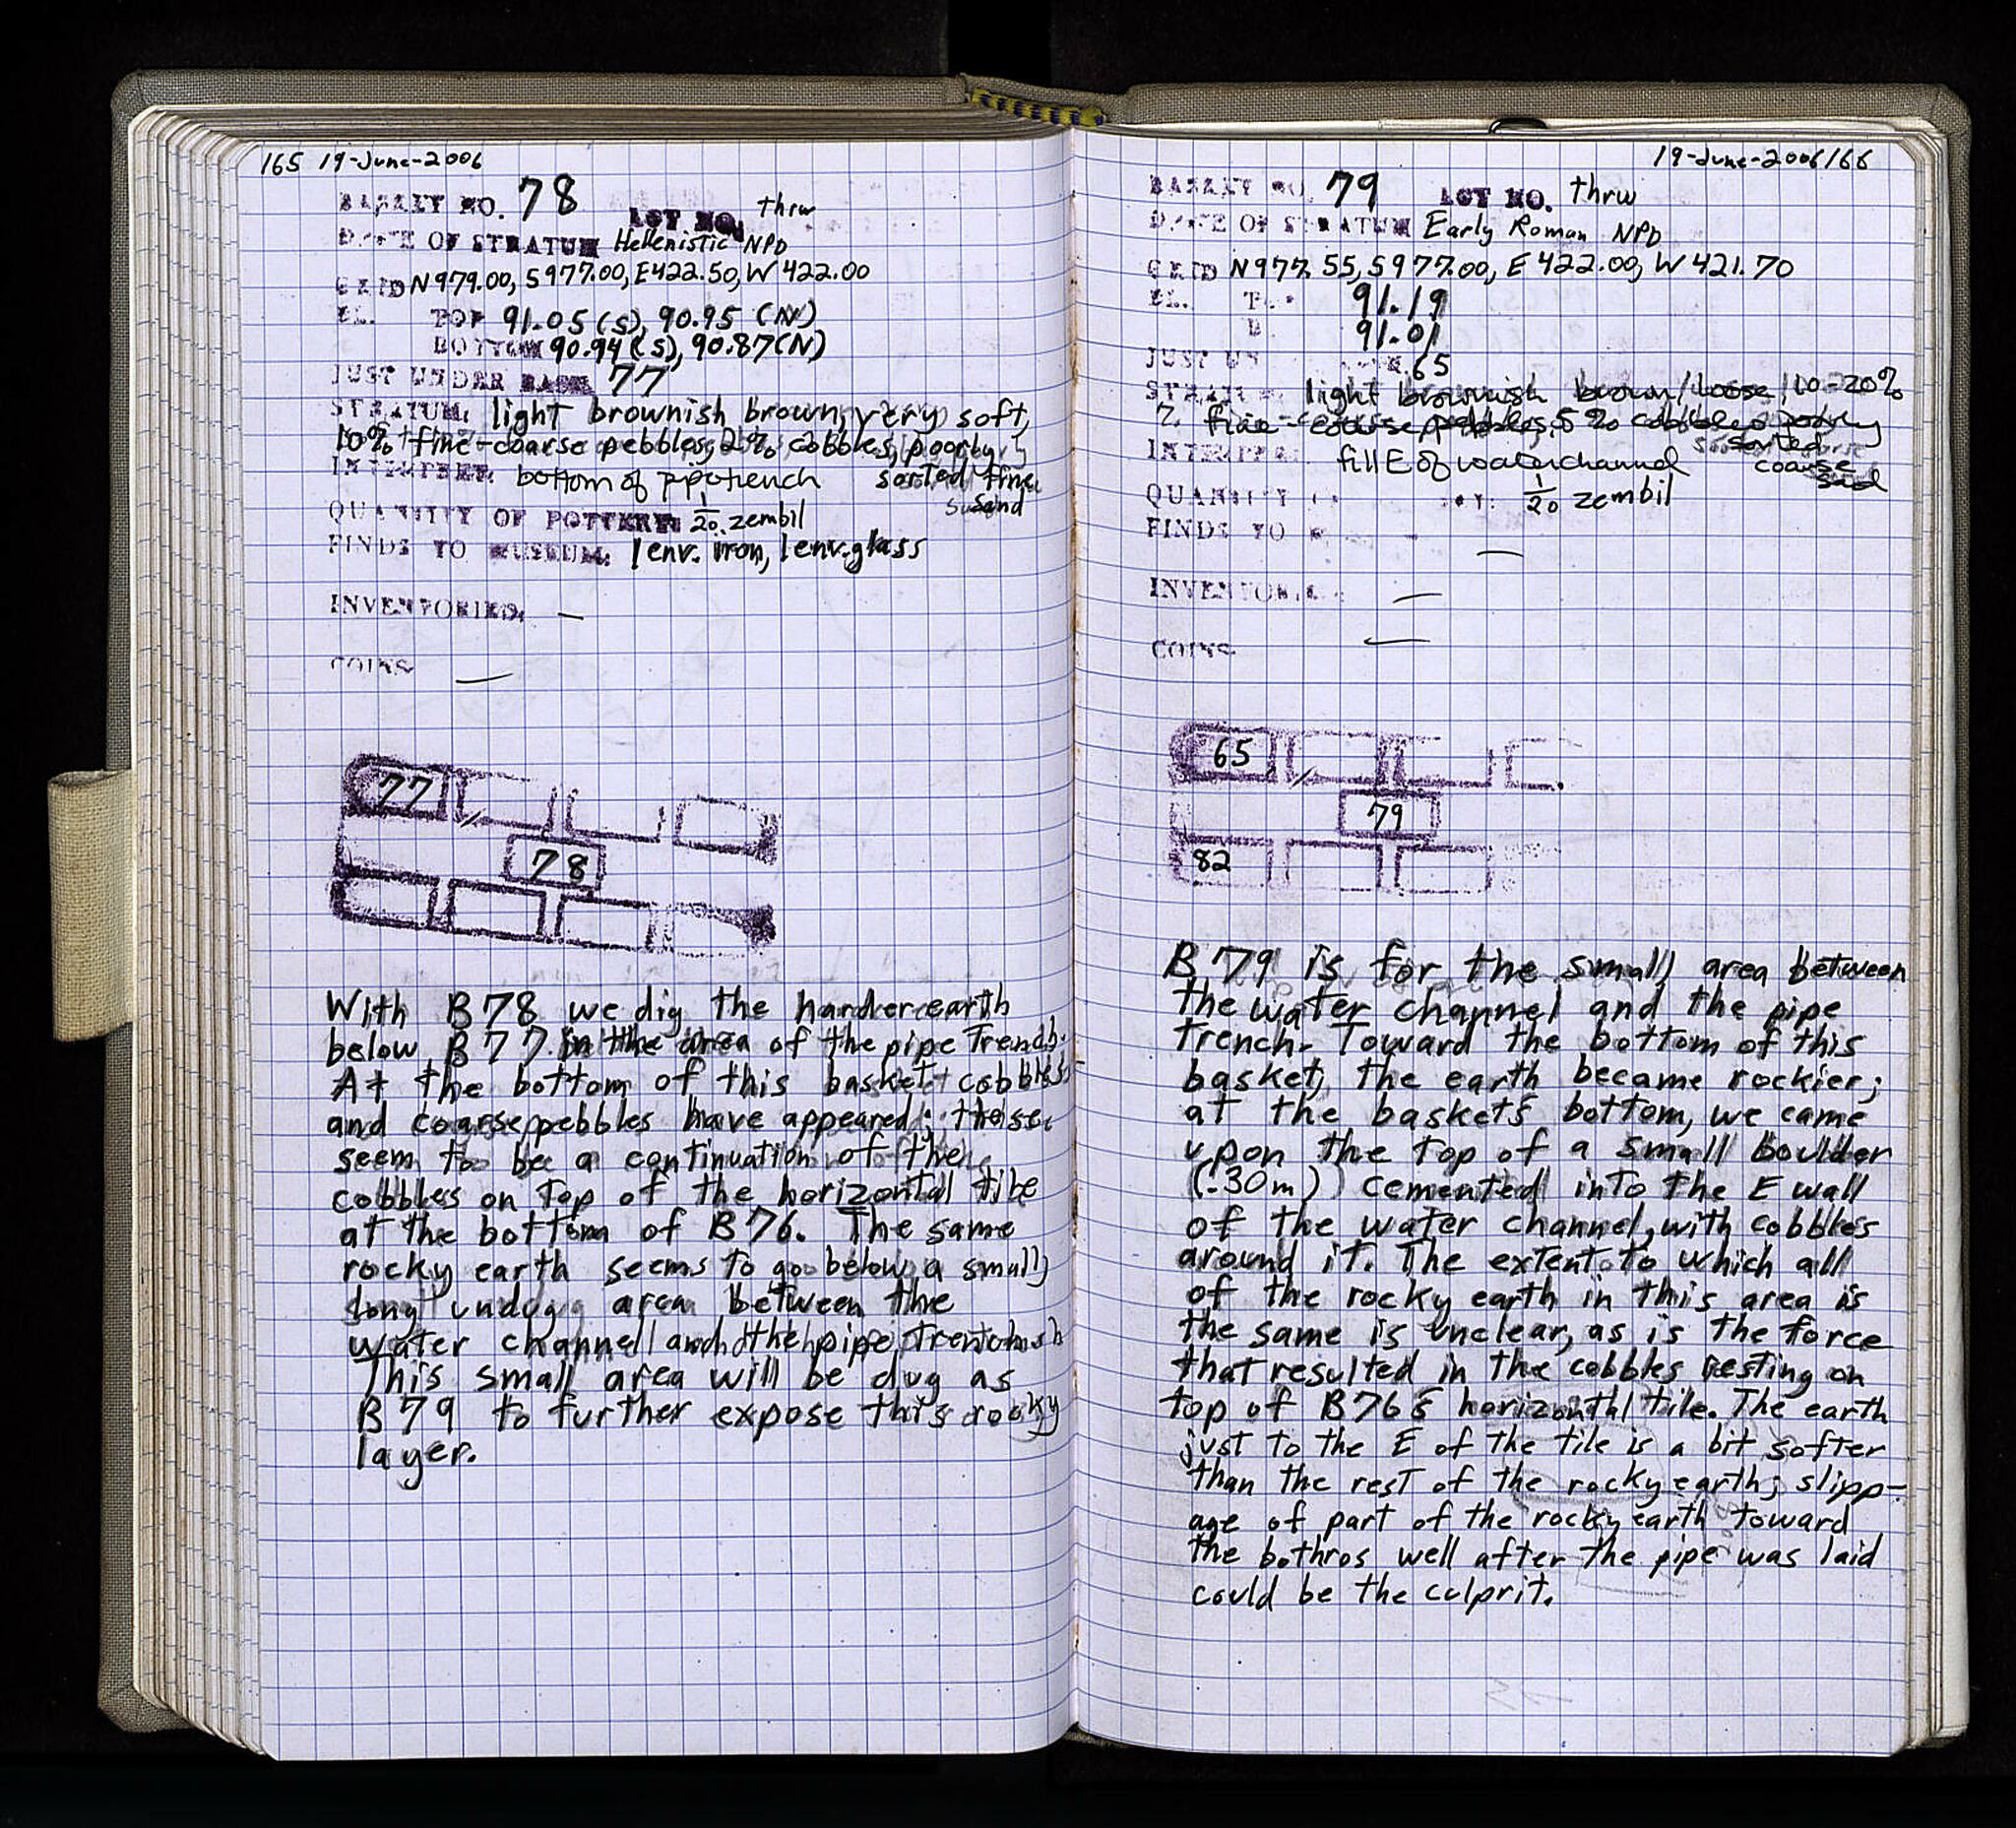 165 19-June-2006
BASKET NO. 78 LOT NO. thrw
DATE OF STRATUM Hellenistic NPD
GRID N979.00, S977.00, E422.50, W422.00
EL. TOP 91.05 (S), 90.95 (N)
BOTTOM 90.94 (S), 90.87 (N)
JUST UNDER BASK. 77
STRATUM: light brownish brown, very soft,
10% fine-coarse pebbles, 2% cobbles, poorly
sorted fine
sand
INTERPRER. bottom of pipe trench
QUANTITY OF POTTERY: 1/20 zembil
FINDS TO MUSEUM: 1 env. iron, 1 env. glass
INVENTORIED: —
COINS —
77
78
With B78 we dig the harder earth
below B77 in the area of the pipe trench.
At the bottom of this basket cobbles
and coarse pebbles have appeared; these
seem to be a continuation of the
cobbles on top of the horizontal tile
at the bottom of B76. The same
rocky earth seems to go below a small,
long undug area between the
water channel and the pipe trench
This small area will be dug as
B79 to further expose this rocky
layer.
19-June-2006 166
BASKET NO. 79 LOT NO. thrw
DATE OF STRATUM Early Roman NPD
GRID N977.55, S977.00, E422.00, W421.70
EL. TOP 91.19
B 91.01
JUST UN 65
STRATUM light brownish brown/loose/10-20%
fine-coarse pebbles, 5% cobbles poorly
sorted
coarse
sand
INTERPRE fill E of water channel
QUANTITY 1/20 zembil
FINDS TO —
INVENTOR —
COINS —
65
79
82
B79 is for the small area between
the water channel and the pipe
trench. Toward the bottom of this
basket, the earth became rockier;
at the basket's bottom, we came
upon the top of a small boulder
(.30m) cemented into the E wall
of the water channel, with cobbles
around it. The extent to which all
of the rocky earth in this area is
the same is unclear, as is the force
that resulted in the cobbles resting on
top of B76's horizontal tile. The earth
just to the E of the tile is a bit softer
than the rest of the rocky earth; slipp-
age of part of the rocky earth toward
the bothros well after the pipe was laid
could be the culprit.